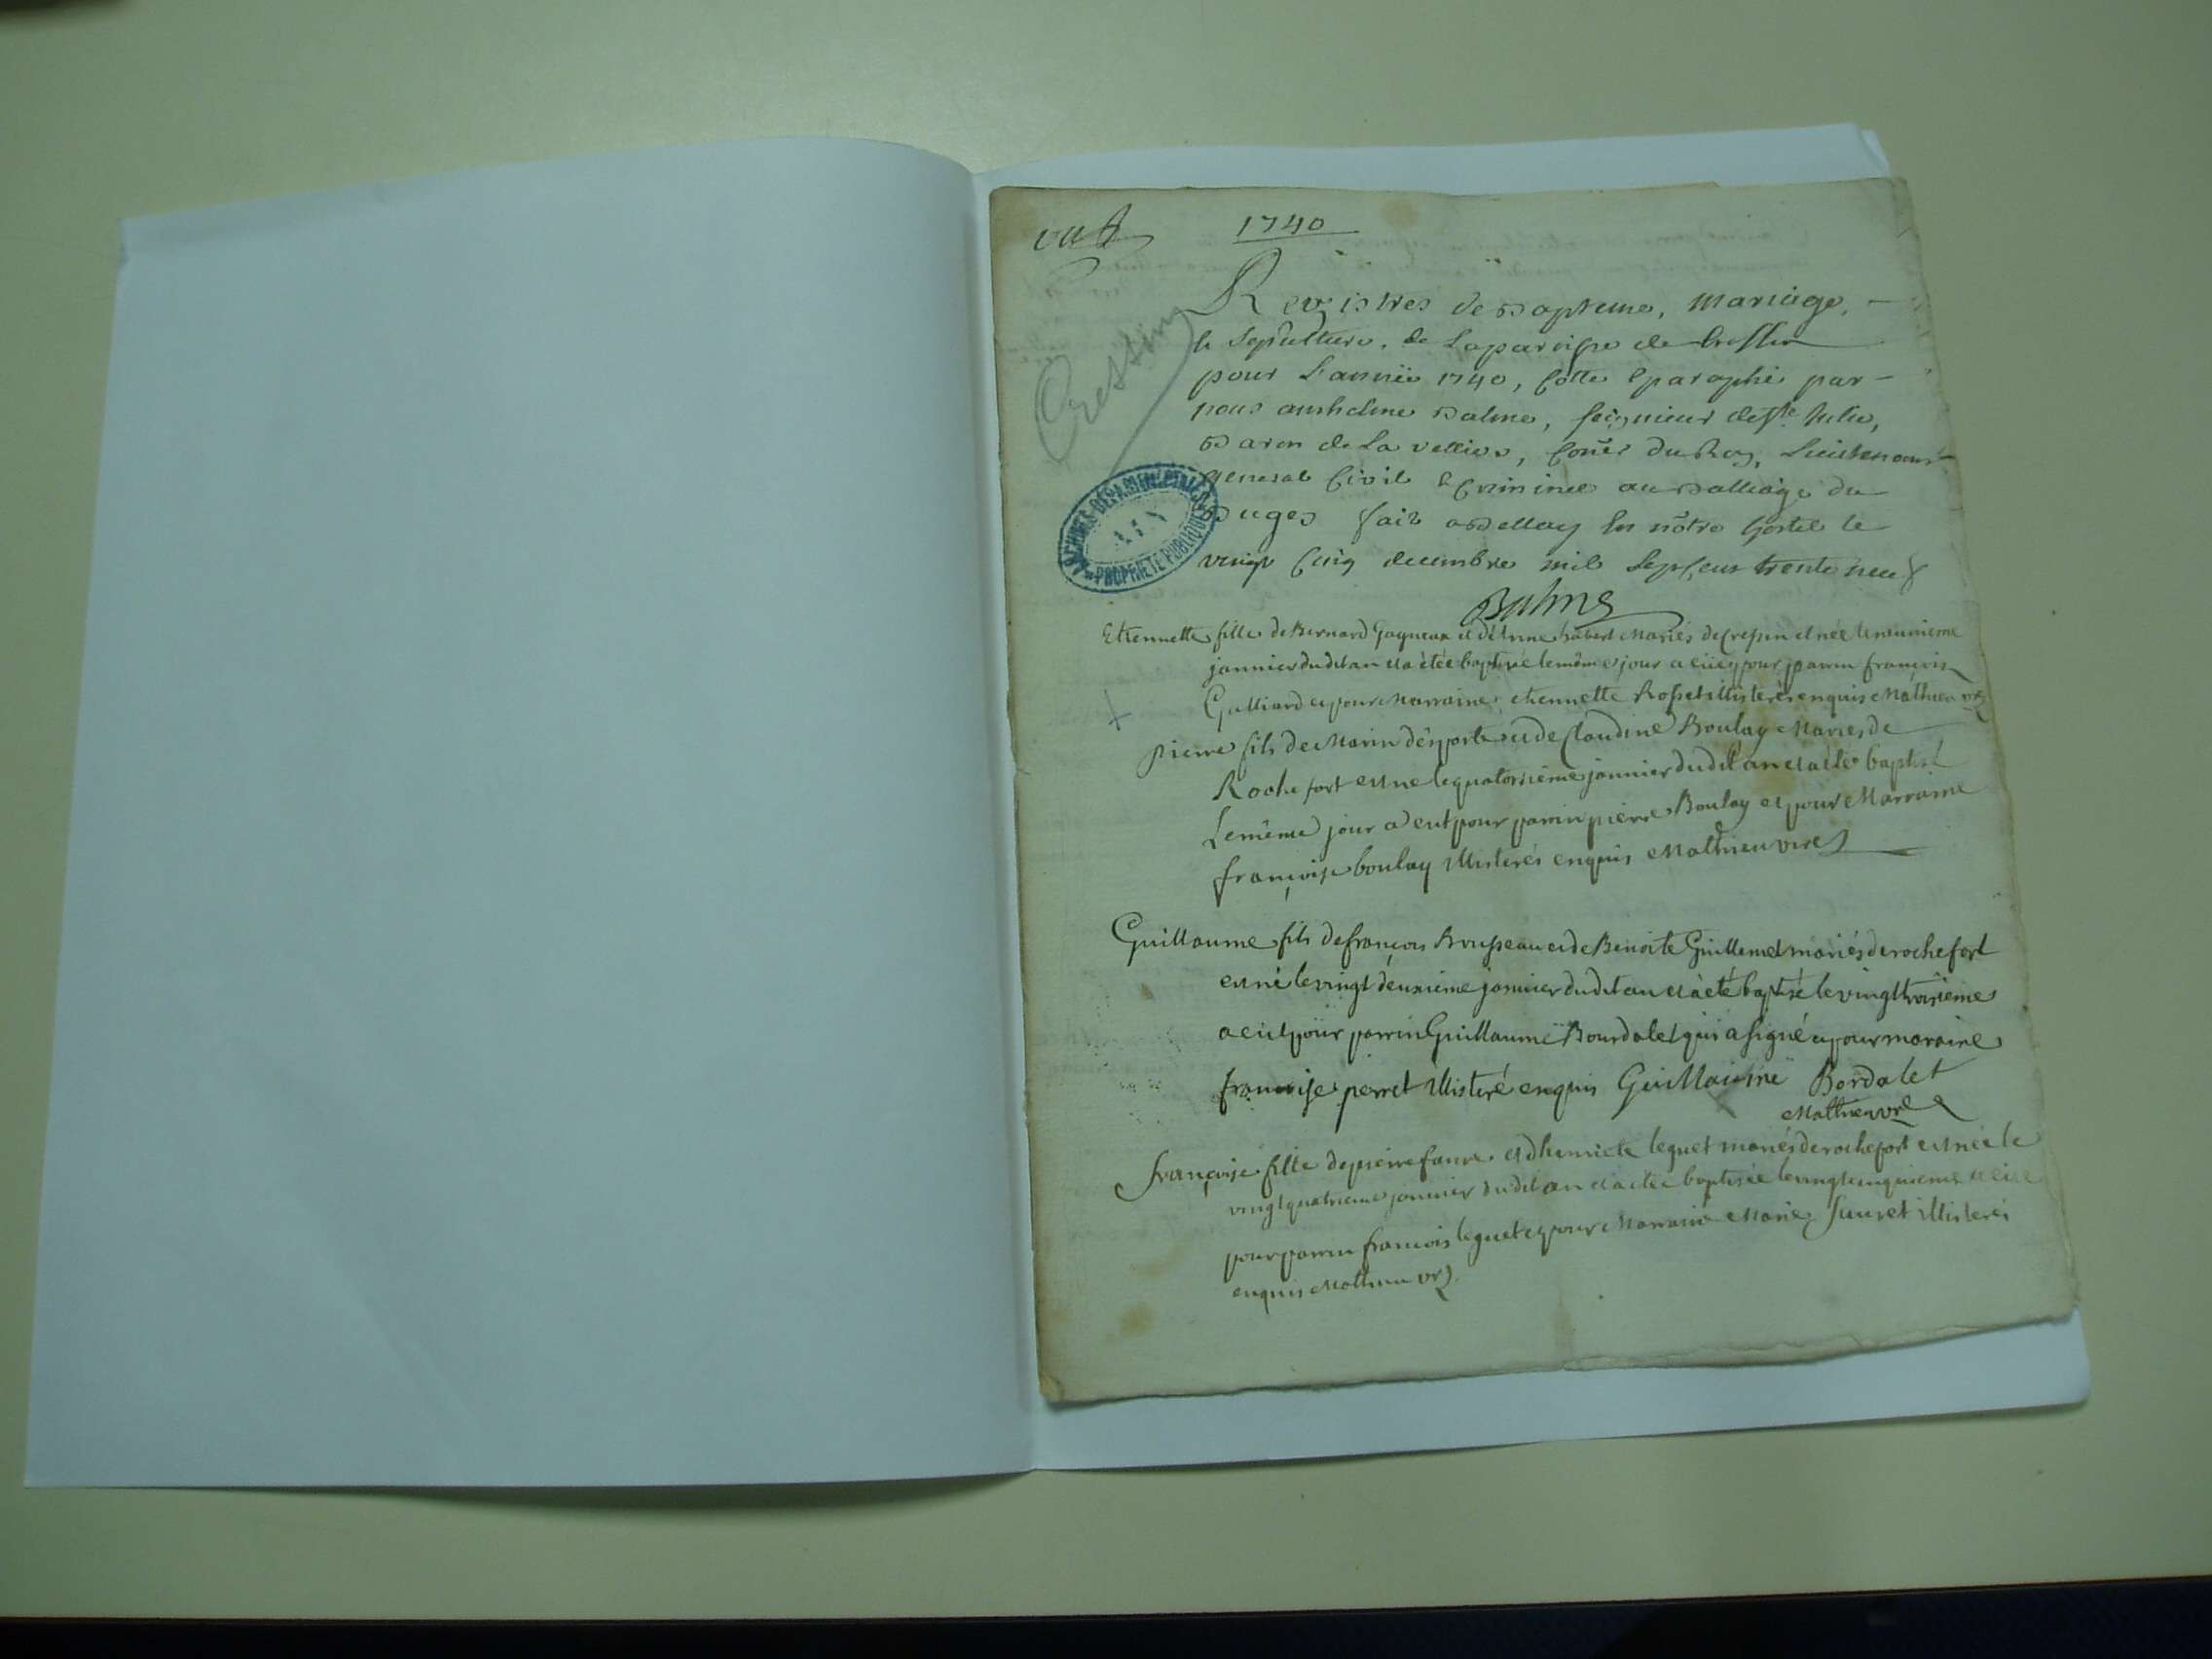 1740
Cressin
Registres de Bapteme, mariage,
& sepulture, de la paroisse de Cressin
pour L'année 1740, Cotté & paraphé par
nous anthelme Balme, seigneur de Ste Julie,
Baron de La vellier, Coner du Roy, Lieutenant
General Civil & Criminel au Balliage du
Buges fait a Bellay En nôtre hostel le
vingt Cinq decembre mil sept cent trente neuf
ARCHIVES DÉPARTEMENTALES
AIN
PROPRIÉTÉ PUBLIQUE
Balme
Etiennette fille de Bernard Gagneux et mariés de Cressin et née le neuvieme
janvier dudit an et a etée baptisée le même jour a eü pour parrin françois
Gulliard et pour Marraine etiennette Rosset illiterés enquis Mathieu vre
pierre fils de Marin désporte et de Claudine Boulay Mariés de
Rochefort est ne le quatorsiéme janvier dudit an et a été baptisé
Le même jour a eut pour parrin pierre Boulay et pour Marraine
françoise boulay illiterés enquis Mathieu vre
Guillaume fils de françois Brusseau et de Benoite Guillemet mariés de rochefort
est né le vingt deuxieme janvier dudit an et à eté baptisé le vingttroisieme
a eut pour parrin Guillaume Bourdalet qui a signé et pour maraine
françoise perret illiteré enquis Guillaume Bordalet
Mathieu vre
françoise fille de pierre faure et dhenriete leguet mariés de rochefort est née le
vingt quatrieme janvier dudit an et a etée baptisée le vingt cinquieme a eüe
pour parrin francois leguet et pour Marraine Marie suuret illiterés
enquis Mathieu vre